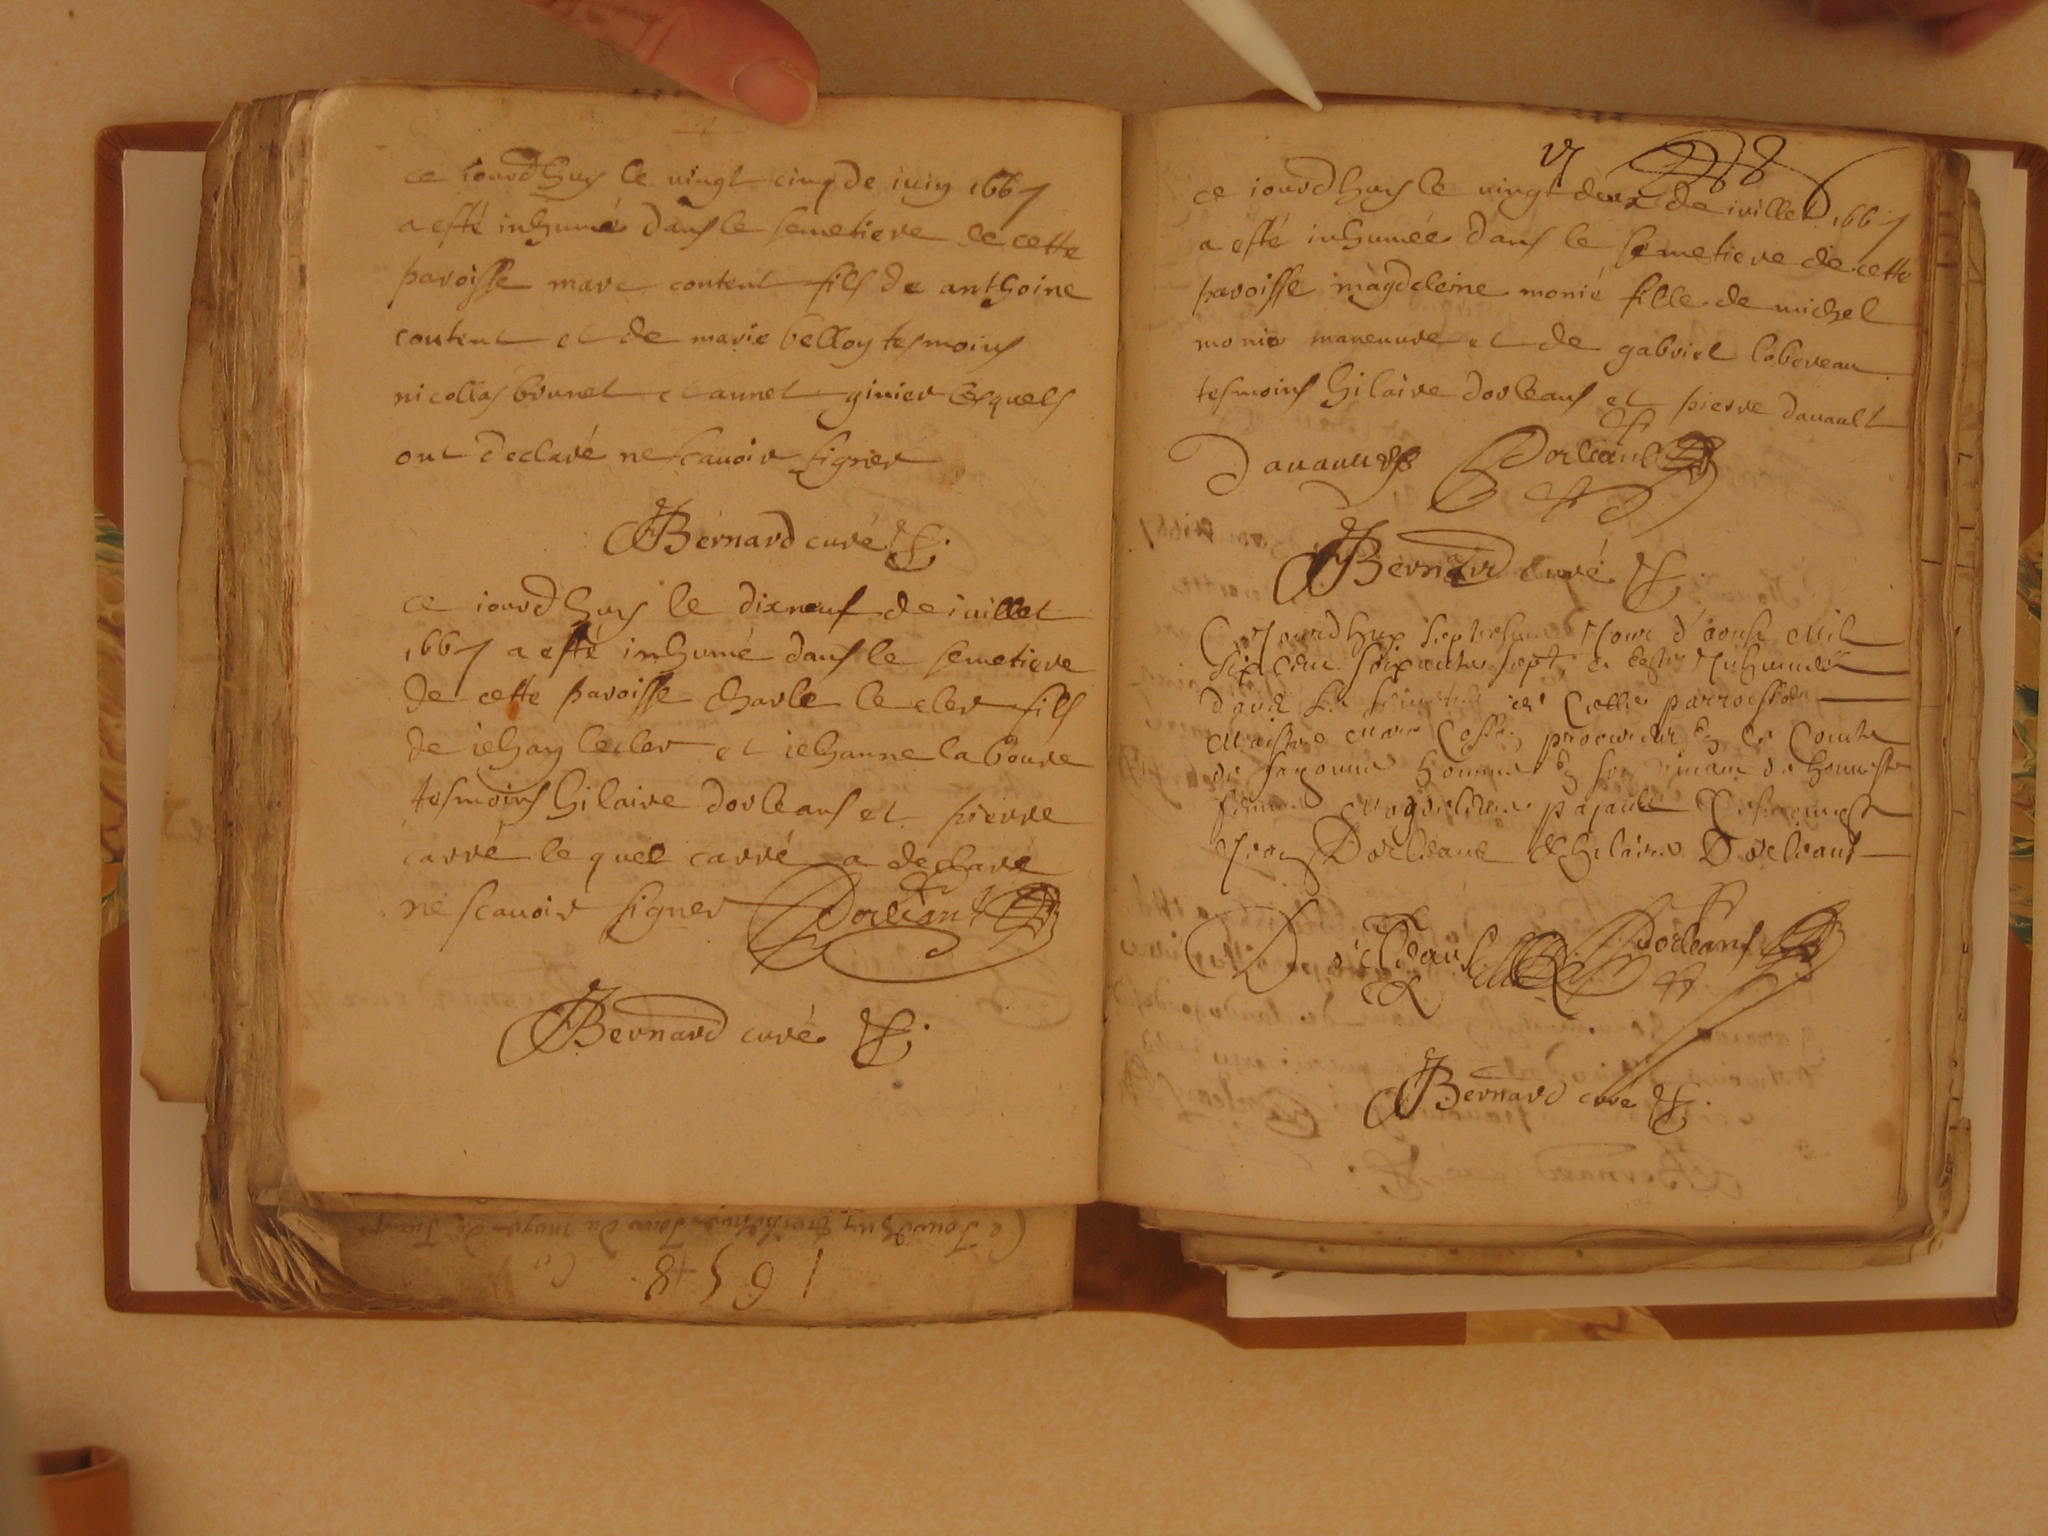 ce iourdhuy le uingt cinq de iuin 1667
a esté inhumé dans le semetiere de cette
paroisse marc content fils de anthoine
content et de marie belloy tesmoins
nicollas brunet et annet ginier lesquels
ont declaré ne scauoir signer
Bernard curé
ce iourdhuy le dixneuf de iuillet
1667 a esté inhumé dans le semetiere
de cette paroisse charle le cler fils
de iehan lecler et iehanne laboure
tesmoins hilaire dorleans et pierre
carré le quel carré a declaré
ne scauoir signer Dorleans
Bernard curé
ce iourdhuy le uingt deux de iuillet 1667
a esté inhumée dans le semetiere de cette
paroisse magdeleine monié fille de michel
monié maneuure et de gabriel lobereau
tesmoins hilaire dorleans et pierre dauault
Dorleans
Bernard curé
Ce Jourdhuy Jour d'aoust Mil
six cens soixante sept a esté Inhumé
dans le de Cette parroisse
Maistre Marc procureur en la Comté
de homme en son viuant de honneste
femme Magdeleine pajault
Jean Dorleans & hilaire Dorleans
Dorleans Dorleans
Bernard curé
Ce Jourdhuy Jour du moys de Juing
1658